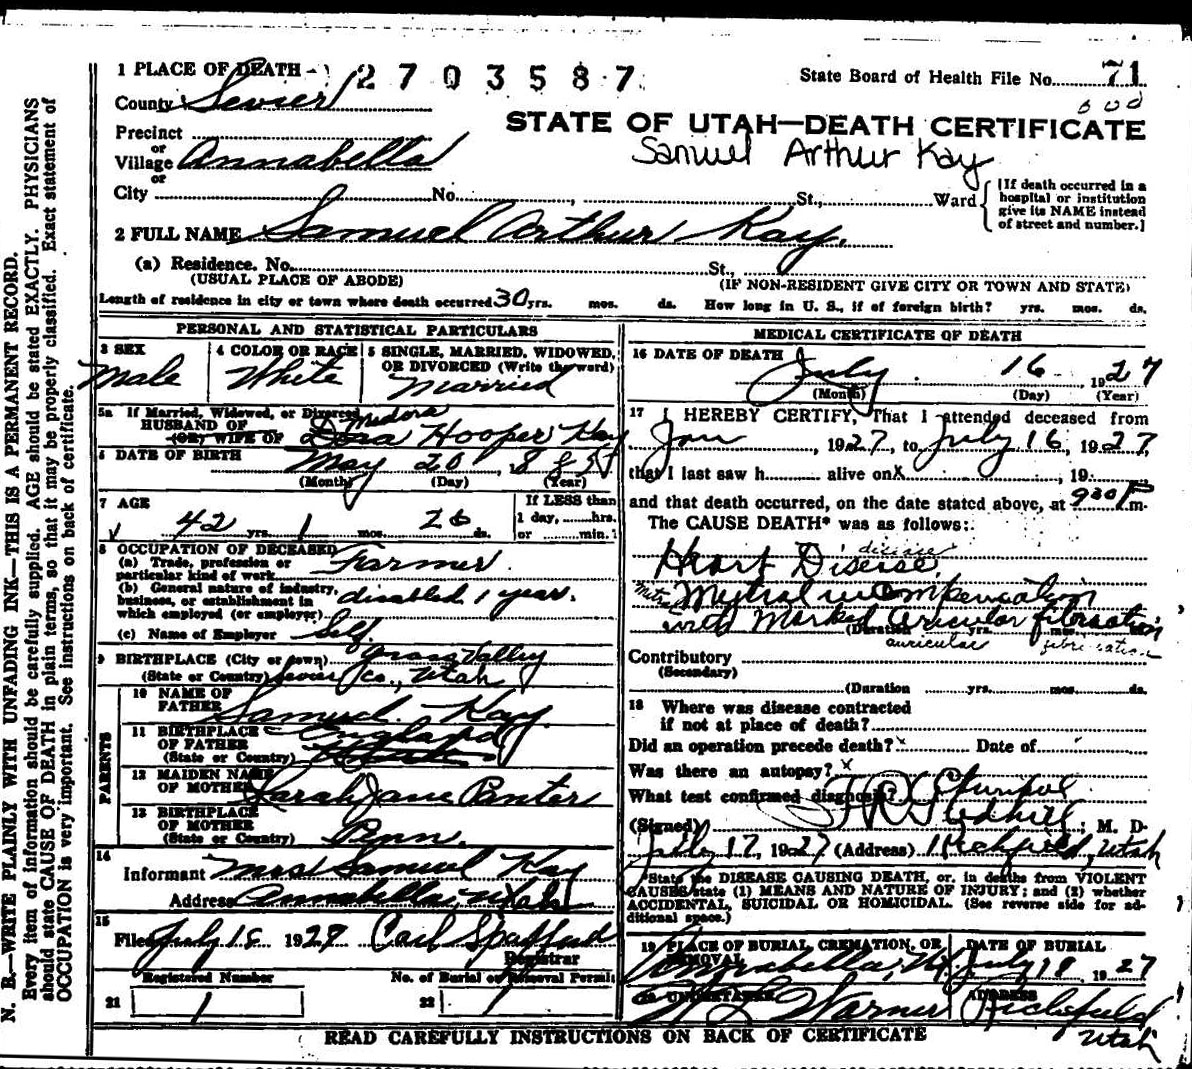 1 PLACE OF DEATH- 2703587 State Board of Health File No. 71
County Sevier
STATE OF UTAH—DEATH CERTIFICATE
Precinct
or
Village Annabella
Samuel Arthur Kay
or
City No. , St., Ward
[If death occurred in a
hospital or institution
give its NAME instead
of street and number.]
2 FULL NAME Samuel Arthur Kay.
(a) Residence. No. St.,
(USUAL PLACE OF ABODE) (IF NON-RESIDENT GIVE CITY OR TOWN AND STATE)
Length of residence in city or town where death occurred 30 yrs. mos. ds. How long in U. S., if of foreign birth? yrs. mos. ds.
PERSONAL AND STATISTICAL PARTICULARS
3 SEX 4 COLOR OR RACE 5 SINGLE, MARRIED, WIDOWED,
OR DIVORCED (Write the word)
Male White Married
5a If Married, Widowed, or Divorced
HUSBAND OF Medora
(OR) WIFE OF Dora Hooper Kay
6 DATE OF BIRTH May 20, 1885
(Month) (Day) (Year)
7 AGE If LESS than
42 yrs. 1 mos. 26 ds. 1 day, hrs.
or min.
8 OCCUPATION OF DECEASED
(a) Trade, profession or
particular kind of work Farmer.
(b) General nature of industry,
business, or establishment in
which employed (or employer) disabled 1 year.
(c) Name of Employer Self
9 BIRTHPLACE (City or town) Grass Valley
(State or Country) Sevier Co., Utah
PARENTS
10 NAME OF
FATHER Samuel Kay
11 BIRTHPLACE
OF FATHER England
(State or Country)
12 MAIDEN NAME
OF MOTHER Sarah Jane Panter
13 BIRTHPLACE
OF MOTHER
(State or Country) Penn.
14
Informant Mrs Samuel Kay
Address Annabella, Utah
15
Filed July 18 1927 Carl Spafford
Registrar
Registered Number No. of Burial or Removal Permit
21 1 22 1
MEDICAL CERTIFICATE OF DEATH
16 DATE OF DEATH July 16, 1927
(Month) (Day) (Year)
17 I HEREBY CERTIFY, That I attended deceased from
Jan , 1927, to July 16, 1927,
that I last saw h alive on X , 19
and that death occurred, on the date stated above, at 930 P m.
The CAUSE DEATH* was as follows:
disease
Heart Disease
Mitral Mytral incompensation
with Marked aricular fibration
(Duration yrs. mos.
auricular fibrilation
Contributory
(Secondary)
(Duration yrs. mos. ds.
18 Where was disease contracted
if not at place of death?
Did an operation precede death? x Date of
Was there an autopsy? x
What test confirmed diagnosis?
(Signed) M. D.
July 17, 1927 (Address) Richfield, Utah
State the DISEASE CAUSING DEATH, or, in deaths from VIOLENT
CAUSES state (1) MEANS AND NATURE OF INJURY; and (2) whether
ACCIDENTAL, SUICIDAL OR HOMICIDAL. (See reverse side for ad-
ditional space.)
19 PLACE OF BURIAL, CREMATION, OR
REMOVAL DATE OF BURIAL
Annabella, Ut July 18 1927
20 UNDERTAKER ADDRESS
Warner Richfield
Utah
READ CAREFULLY INSTRUCTIONS ON BACK OF CERTIFICATE
N. B.—WRITE PLAINLY WITH UNFADING INK—THIS IS A PERMANENT RECORD.
Every item of information should be carefully supplied. AGE should be stated EXACTLY. PHYSICIANS
should state CAUSE OF DEATH in plain terms, so that it may be properly classified. Exact statement of
OCCUPATION is very important. See instructions on back of certificate.